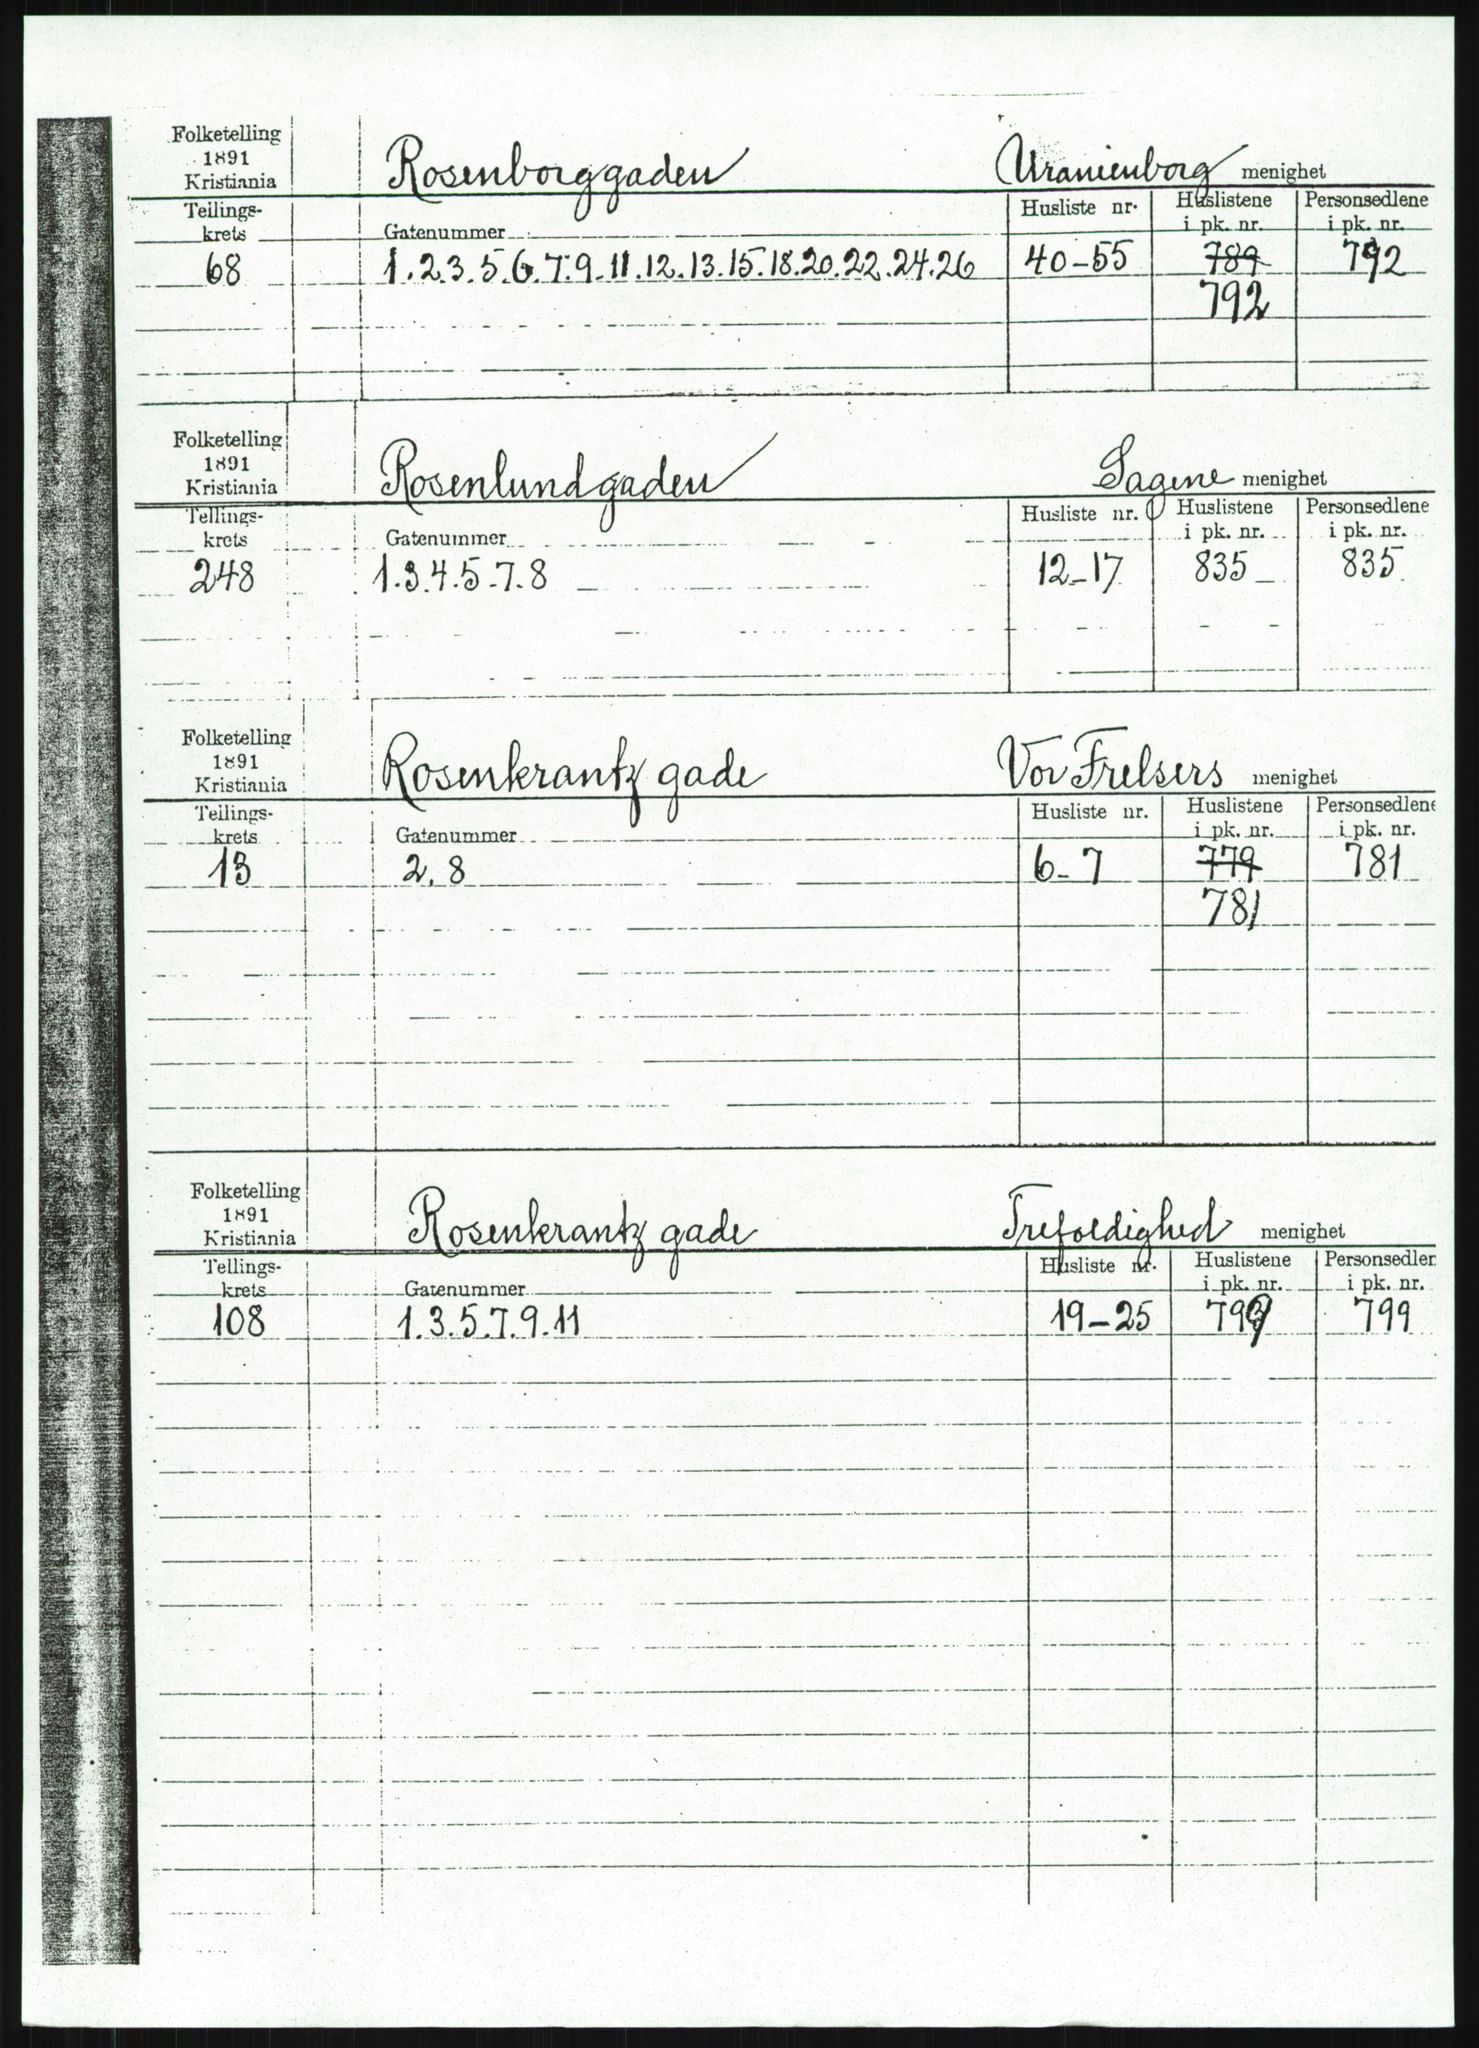 Folketelling
1891
Kristiania
Rosenborggaden
Uranienborg menighet
Tellings-
krets
Gatenummer
Husliste nr.
Huslistene
i pk. nr.
Personsedlene
i pk. nr.
68
1.2.3.5.6.7.9.11.12.13.15.18.20.22.24.26
40-55
789
792
792
Folketelling
1891
Kristiania
Rosenlundgaden
Sagene menighet
Tellings-
krets
Gatenummer
Husliste nr.
Huslistene
i pk. nr.
Personsedlene
i pk. nr.
248
1.3.4.5.7.8
12-17
835
835
Folketelling
1891
Kristiania
Rosenkrantz gade
Vor Frelsers menighet
Tellings-
krets
Gatenummer
Husliste nr.
Huslistene
i pk. nr.
Personsedlene
i pk. nr.
13
2.8
6-7
779
781
781
Folketelling
1891
Kristiania
Rosenkrantz gade
Trefoldighed menighet
Tellings-
krets
Gatenummer
Husliste nr.
Huslistene
i pk. nr.
Personsedlen
i pk. nr.
108
1.3.5.7.9.11
19-25
799
799